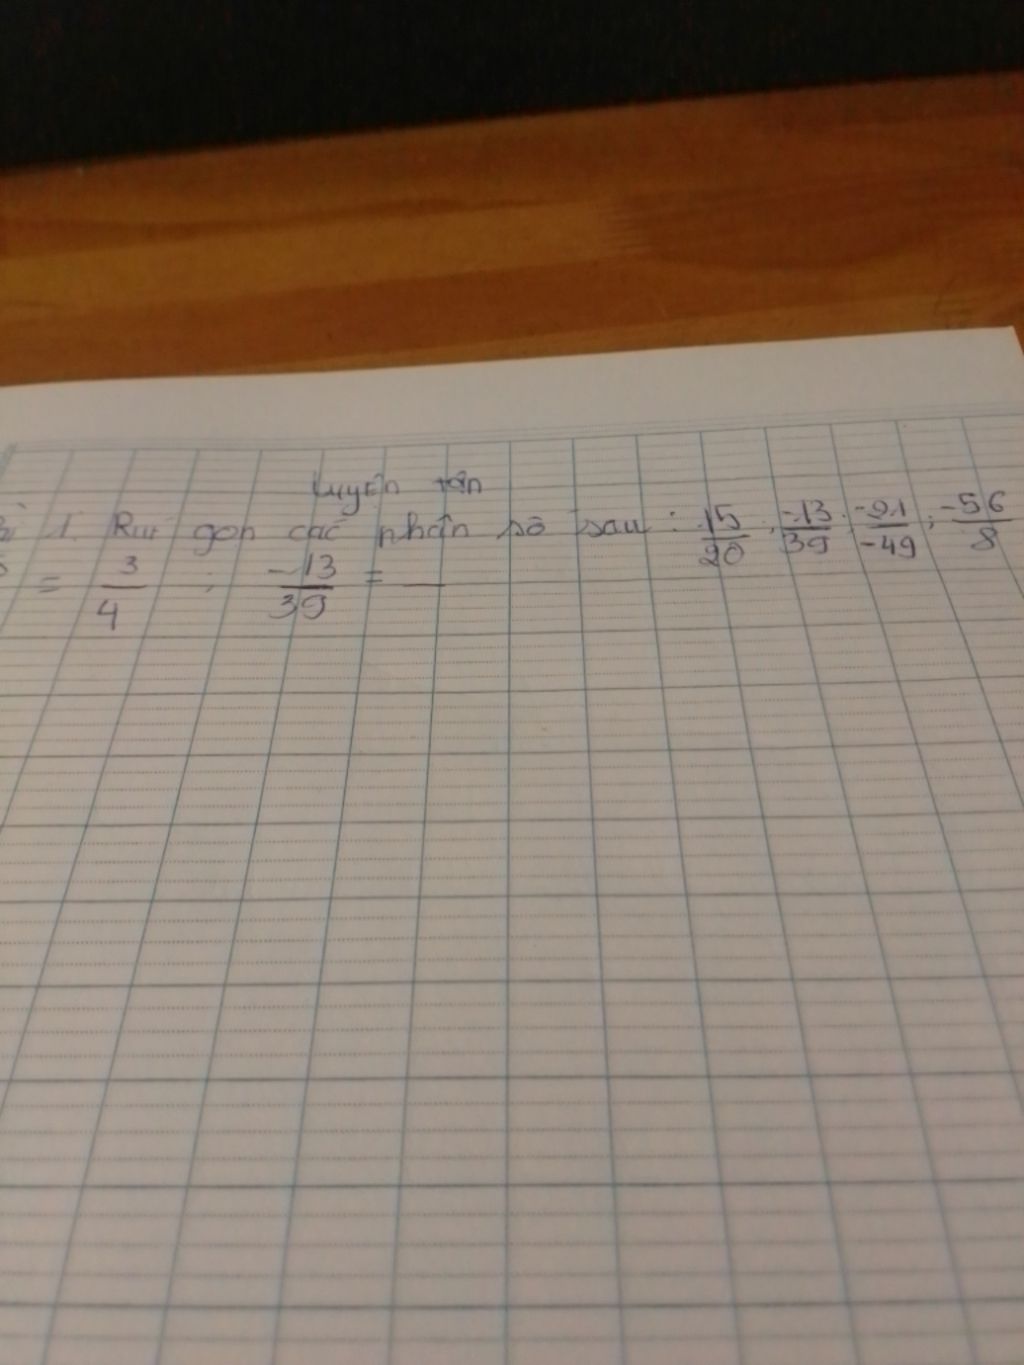 Luyện tập
1. Rút gọn các phân số sau : 15/20 ; -13/39 ; -21/-49 ; -56/8
= 3/4 ; -13/39 = —